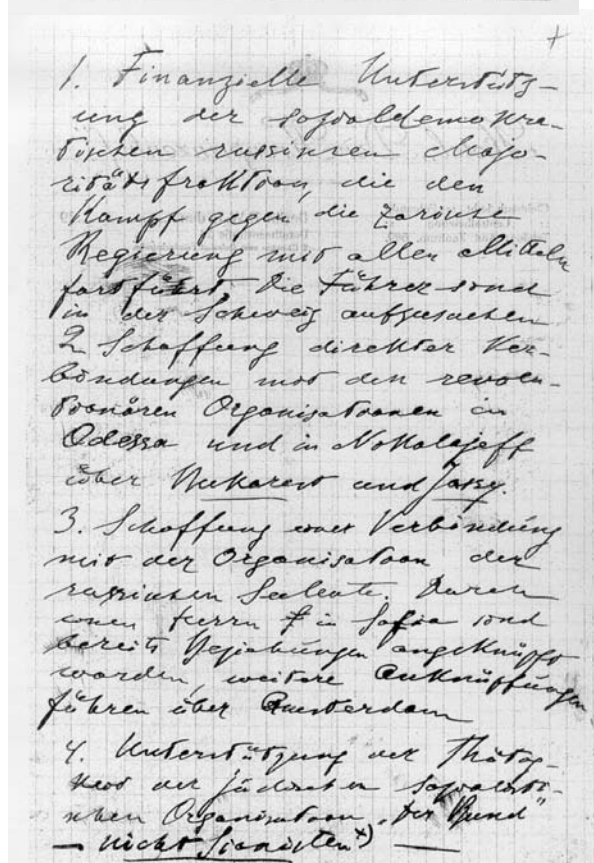 1. Finanzielle Unterstütz-
ung der sozialdemokra-
tischen russischen Majo-
ritätsfraktion, die den
Kampf gegen die zarische
Regierung mit allen Mitteln
fortführt. Die Führer sind
in der Schweiz aufzusuchen
2. Schaffung direkter Ver-
bindungen mit den revolu-
tionären Organisationen in
Odessa und in Nikolajeff
über Bukarest und Jassy.
3. Schaffung einer Verbindung
mit der Organisation der
russischen Seeleute. Durch
einen Herrn in Sofia sind
bereits Beziehungen angeknüpft
worden, weitere Anknüpfungen
führen über Amsterdam
4. Unterstützung der Thätig-
keit der jüdischen sozialisti-
schen Organisation „Der Bund"
— nicht Sionisten x) —